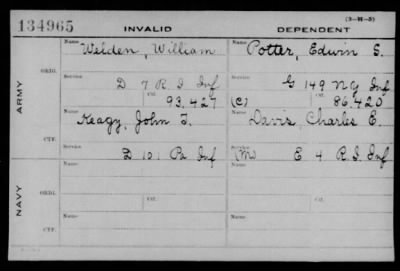 (3-H-5)
134965 INVALID DEPENDENT
ARMY
ORIG.
Name Welden, William
Name Potter, Edwin S.
Service D 7 R.I Inf
Service G 149 NY Inf
Ctf. 93,427
(C) Ctf. 86,420
CTF.
Name Keagy, John T.
Name Davis, Charles E.
Service D 101 Pa Inf
Service (M) E 4 R.I. Inf
NAVY
ORIG.
Name
Name
Service
Service
Ctf.
Ctf.
CTF.
Name
Name